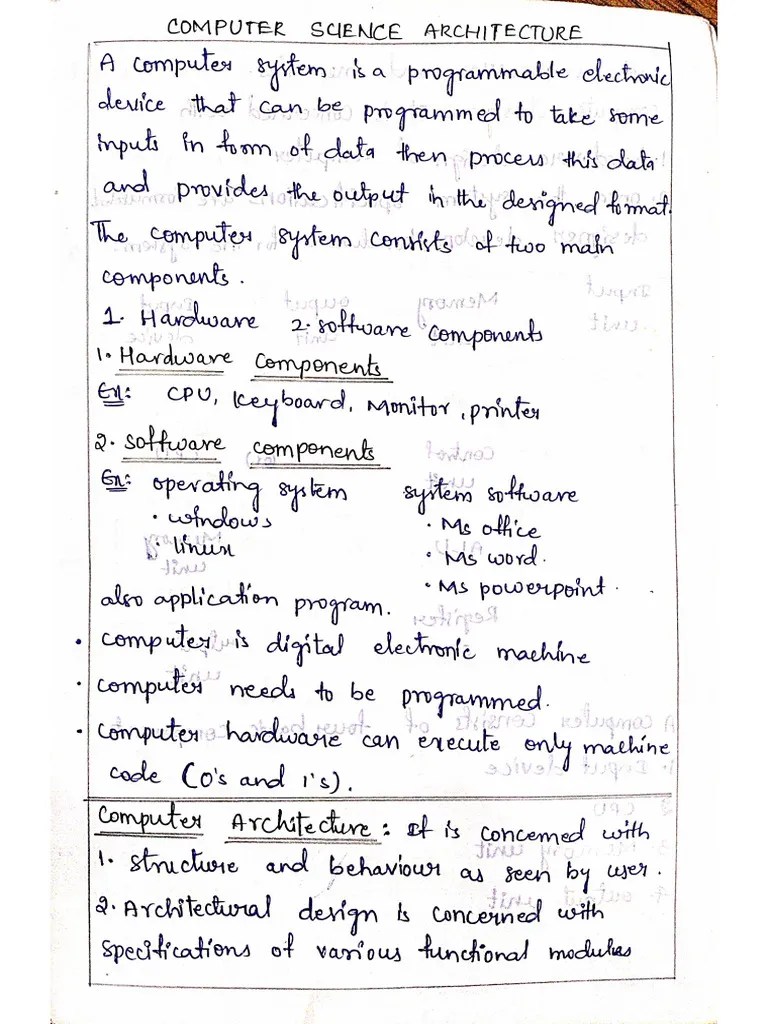 COMPUTER SCIENCE ARCHITECTURE
A computer system is a programmable electronic
device that can be programmed to take some
inputs in form of data then process this data
and provides the output in the designed format.
The computer system consists of two main
components.
1. Hardware 2. software components
1. Hardware components
Ex: CPU, Keyboard, Monitor, printer
2. Software components
Ex: operating system system software
• windows • Ms office
• linux • Ms word.
• Ms powerpoint.
also application program.
• computer is digital electronic machine
• computer needs to be programmed.
• computer hardware can execute only machine
code (0's and 1's).
Computer Architecture: It is concerned with
1. structure and behaviour as seen by user.
2. Architectural design is concerned with
specifications of various functional modules